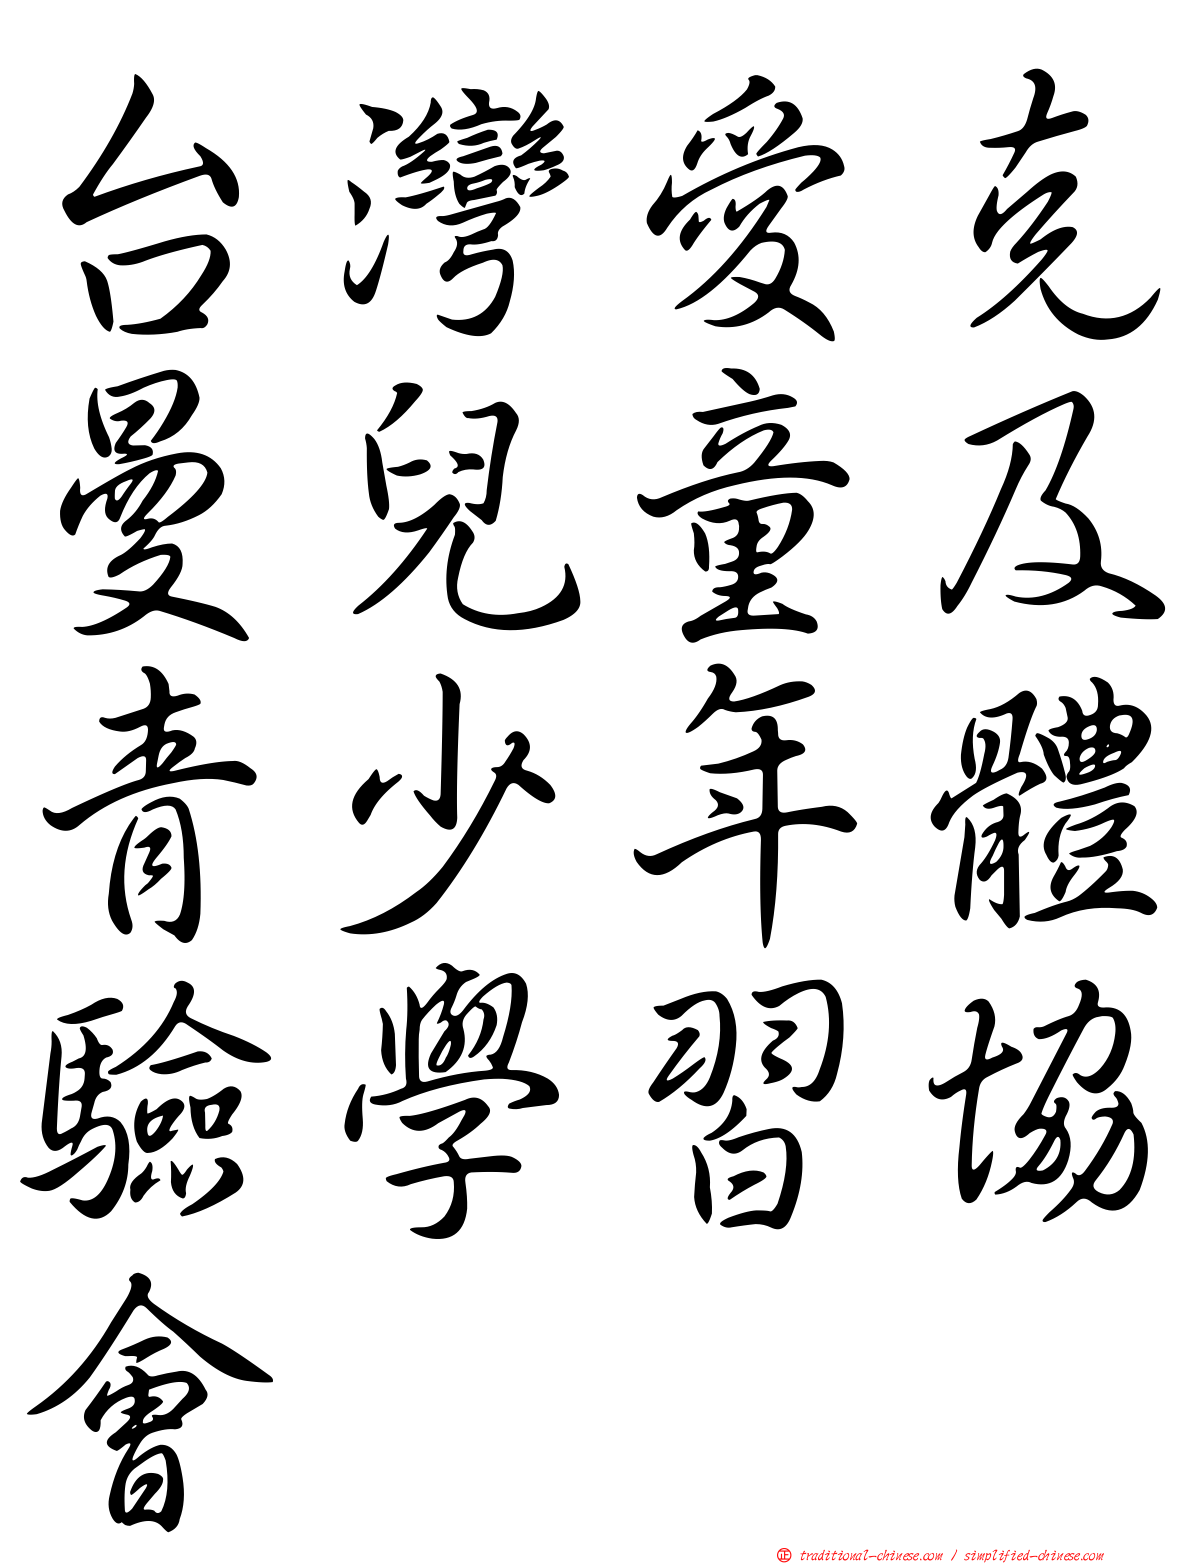 台灣愛克
曼兒童及
青少年體
驗學習協
會
㊣ traditional-chinese.com / simplified-chinese.com